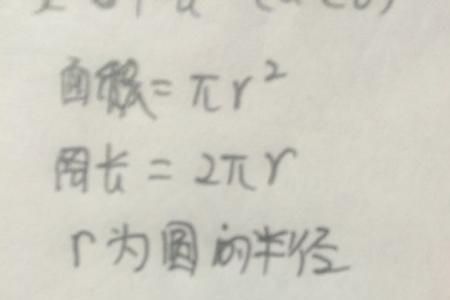 面积=πr²
周长=2πr
r为圆的半径